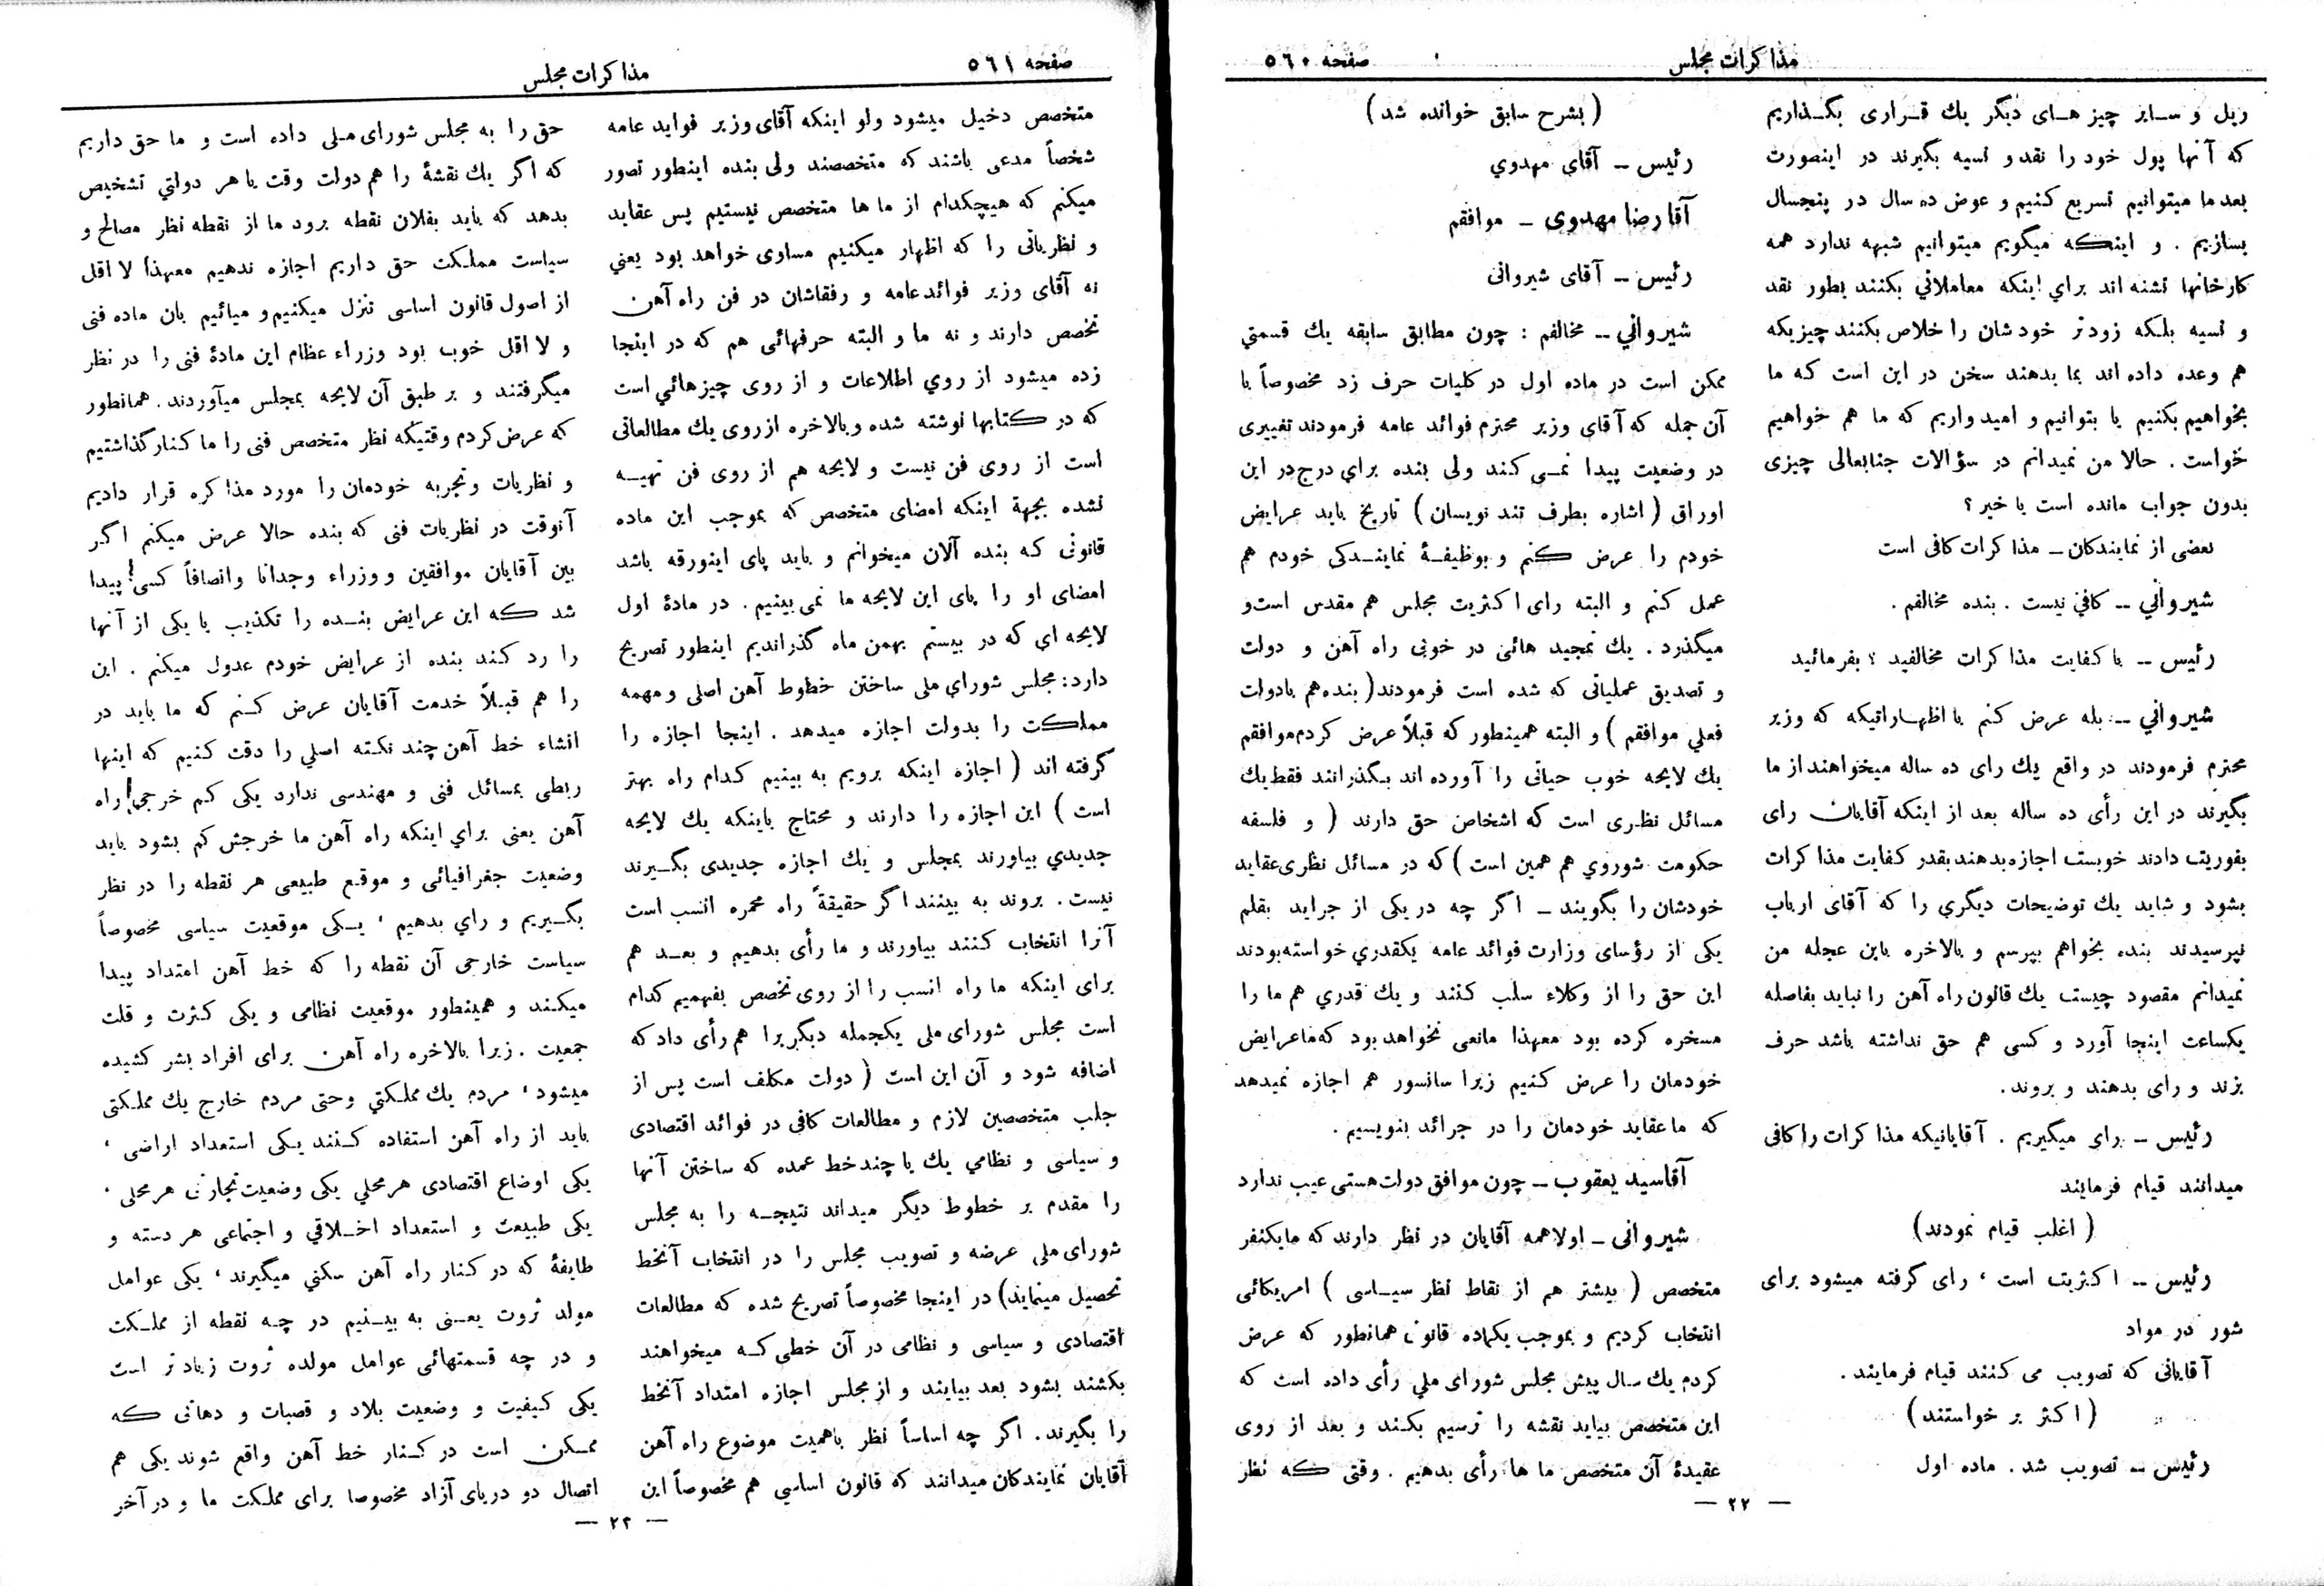 مذاکرات مجلس
صفحه ٥٦٠
ریل و سایر چیز های دیگر یك قراری بگذاریم
که آنها پول خود را نقد و نسیه بگیرند در اینصورت
بعد ما میتوانیم تسریع کنیم و عوض ده سال در پنجسال
بسازیم . و اینکه میگویم میتوانیم شبهه ندارد همه
کارخانها تشنه اند برای اینکه معاملاتی بکنند بطور نقد
و نسیه بلکه زودتر خودشان را خلاص بکنند چیزیکه
هم وعده داده اند بما بدهند سخن در این است که ما
بخواهیم بکنیم یا بتوانیم و امید واریم که ما هم خواهیم
خواست . حالا من نمیدانم در سؤالات جنابعالی چیزی
بدون جواب مانده است یا خیر ؟
بعضی از نمایندکان ــ مذا کرات کافی است
شیروانی ــ کافی نیست . بنده مخالفم .
رئیس ــ با کفایت مذا کرات مخالفید ؟ بفرمائید
شیروانی ــ بله عرض کنم با اظهاراتیکه که وزیر
محترم فرمودند در واقع یك رای ده ساله میخواهند از ما
بگیرند در این رأی ده ساله بعد از اینکه آقایان رای
بفوریت دادند خوبست اجازه بدهند بقدر کفایت مذا کرات
بشود و شاید یك توضیحات دیگری را که آقای ارباب
نپرسیدند بنده بخواهم بپرسم و بالاخره باین عجله من
نمیدانم مقصود چیست یك قانون راه آهن را نباید بفاصله
یکساعت اینجا آورد و کسی هم حق نداشته باشد حرف
بزند و رای بدهند و بروند.
رئیس ــ رای میگیریم . آقایانیکه مذا کرات را کافی
میدانند قیام فرمایند
( اغلب قیام نمودند)
رئیس ــ اکثریت است ، رای گرفته میشود برای
شور در مواد
آقایانی که تصویب می کنند قیام فرمایند .
(اکثر بر خواستند)
رئیس ــ تصویب شد . ماده اول
( بشرح سابق خوانده شد )
رئیس ــ آقای مهدوی
آقا رضا مهدوی ــ موافقم
رئیس ــ آقای شیروانی
شیروانی ــ مخالفم : چون مطابق سابقه یك قسمتی
ممکن است در ماده اول در کلیات حرف زد مخصوصاً با
آن جمله که آقای وزیر محترم فوائد عامه فرمودند تغییری
در وضعیت پیدا نمی کند ولی بنده برای درج در این
اوراق ( اشاره بطرف تند نویسان ) تاریخ باید عرایض
خودم را عرض کنم و بوظیفهٔ نمایندکی خودم هم
عمل کنم و البته رای اکثریت مجلس هم مقدس است و
میگذرد . یك تمجید هائی در خوبی راه آهن و دولت
و تصدیق عملیاتی که شده است فرمودند ( بنده هم با دولت
فعلی موافقم ) و البته همینطور که قبلاً عرض کردم موافقم
یك لایحه خوب حیاتی را آورده اند بگذرانند فقط یك
مسائل نظری است که اشخاص حق دارند ( و فلسفه
حکومت شوروی هم همین است ) که در مسائل نظری عقاید
خودشان را بگویند ــ اگر چه در یکی از جراید بقلم
یکی از رؤسای وزارت فوائد عامه یکقدری خواسته بودند
این حق را از وکلاء سلب کنند و یك قدری هم ما را
مسخره کرده بود معهذا مانعی نخواهد بود که ما عرایض
خودمان را عرض کنیم زیرا سانسور هم اجازه نمیدهد
که ما عقاید خودمان را در جرائد بنویسیم .
آقا سید یعقوب ــ چون موافق دولت هستی عیب ندارد
شیروانی ــ اولا همه آقایان در نظر دارند که ما یکنفر
متخصص ( بیشتر هم از نقاط نظر سیاسی ) امریکائی
انتخاب کردیم و بموجب یکماده قانون همانطور که عرض
کردم یك سال پیش مجلس شورای ملی رأی داده است که
این متخصص بیاید نقشه را ترسیم بکند و بعد از روی
عقیدهٔ آن متخصص ما ها رأی بدهیم . وقتی که نظر
— ٢٢ —
صفحه ٥٦١
مذاکرات مجلس
متخصص دخیل میشود ولو اینکه آقای وزیر فواید عامه
شخصاً مدعی باشند که متخصصند ولی بنده اینطور تصور
میکنم که هیچکدام از ما ها متخصص نیستیم پس عقاید
و نظریاتی را که اظهار میکنیم مساوی خواهد بود یعنی
نه آقای وزیر فوائد عامه و رفقاشان در فن راه آهن
تخصص دارند و نه ما و البته حرفهائی هم که در اینجا
زده میشود از روی اطلاعات و از روی چیزهائی است
که در کتابها نوشته شده و بالاخره از روی یك مطالعاتی
است از روی فن نیست و لایحه هم از روی فن تهیه
نشده بجهة اینکه امضای متخصص که بموجب این ماده
قانونی که بنده آلان میخوانم و باید پای اینورقه باشد
امضای او را پای این لایحه ما نمی بینیم . در مادهٔ اول
لایحه ای که در بیستم بهمن ماه گذراندیم اینطور تصریح
دارد: مجلس شورای ملی ساختن خطوط آهن اصلی و مهمه
مملکت را بدولت اجازه میدهد . اینجا اجازه را
گرفته اند ( اجازه اینکه برویم به بینیم کدام راه بهتر
است ) این اجازه را دارند و محتاج باینکه یك لایحه
جدیدی بیاورند بمجلس و یك اجازه جدیدی بگیرند
نیست . بروند به بینند اگر حقیقةً راه محمره انسب است
آنرا انتخاب کنند بیاورند و ما رأی بدهیم و بعد هم
برای اینکه ما راه انسب را از روی تخصص بفهمیم کدام
است مجلس شورای ملی یکجمله دیگریرا هم رأی داد که
اضافه شود و آن این است ( دولت مکلف است پس از
جلب متخصصین لازم و مطالعات کافی در فوائد اقتصادی
و سیاسی و نظامی یك یا چند خط عمده که ساختن آنها
را مقدم بر خطوط دیگر میداند نتیجه را به مجلس
شورای ملی عرضه و تصویب مجلس را در انتخاب آنخط
تحصیل مینماید) در اینجا مخصوصاً تصریح شده که مطالعات
اقتصادی و سیاسی و نظامی در آن خطی که میخواهند
بکشند بشود بعد بیایند و از مجلس اجازه امتداد آنخط
را بگیرند . اگر چه اساساً نظر باهمیت موضوع راه آهن
آقایان نمایندکان میدانند که قانون اساسی هم مخصوصاً این
حق را به مجلس شورای ملی داده است و ما حق داریم
که اگر یك نقشهٔ را هم دولت وقت یا هر دولتی تشخیص
بدهد که باید بفلان نقطه برود ما از نقطه نظر مصالح و
سیاست مملکت حق داریم اجازه ندهیم معهذا لا اقل
از اصول قانون اساسی تنزل میکنیم و میائیم بان ماده فنی
و لا اقل خوب بود وزراء عظام این مادهٔ فنی را در نظر
میگرفتند و بر طبق آن لایحه بمجلس میآوردند . همانطور
که عرض کردم وقتیکه نظر متخصص فنی را ما کنار گذاشتیم
و نظریات و تجربه خودمان را مورد مذا کره قرار دادیم
آنوقت در نظریات فنی که بنده حالا عرض میکنم اگر
بین آقایان موافقین و وزراء وجدانا وانصافاً کسی پیدا
شد که این عرایض بنده را تکذیب یا یکی از آنها
را رد کند بنده از عرایض خودم عدول میکنم . این
را هم قبلاً خدمت آقایان عرض کنم که ما باید در
انشاء خط آهن چند نکته اصلی را دقت کنیم که اینها
ربطی بمسائل فنی و مهندسی ندارد یکی کم خرجی راه
آهن یعنی برای اینکه راه آهن ما خرجش کم بشود باید
وضعیت جغرافیائی و موقع طبیعی هر نقطه را در نظر
بگیریم و رای بدهیم ، یکی موقعیت سیاسی مخصوصاً
سیاست خارجی آن نقطه را که خط آهن امتداد پیدا
میکند و همینطور موقعیت نظامی و یکی کثرت و قلت
جمعیت . زیرا بالاخره راه آهن برای افراد بشر کشیده
میشود ، مردم یك مملکتی وحتی مردم خارج یك مملکتی
باید از راه آهن استفاده کنند یکی استعداد اراضی ،
یکی اوضاع اقتصادی هر محلی یکی وضعیت تجارتی هر محلی ،
یکی طبیعت و استعداد اخلاقی و اجتماعی هر دسته و
طایفهٔ که در کنار راه آهن سکنی میگیرند ، یکی عوامل
مولد ثروت یعنی به بینیم در چه نقطه از مملکت
و در چه قسمتهائی عوامل مولده ثروت زیادتر است
یکی کیفیت و وضعیت بلاد و قصبات و دهاتی که
ممکن است در کنار خط آهن واقع شوند یکی هم
اتصال دو دریای آزاد مخصوصا برای مملکت ما و در آخر
— ٢٣ —